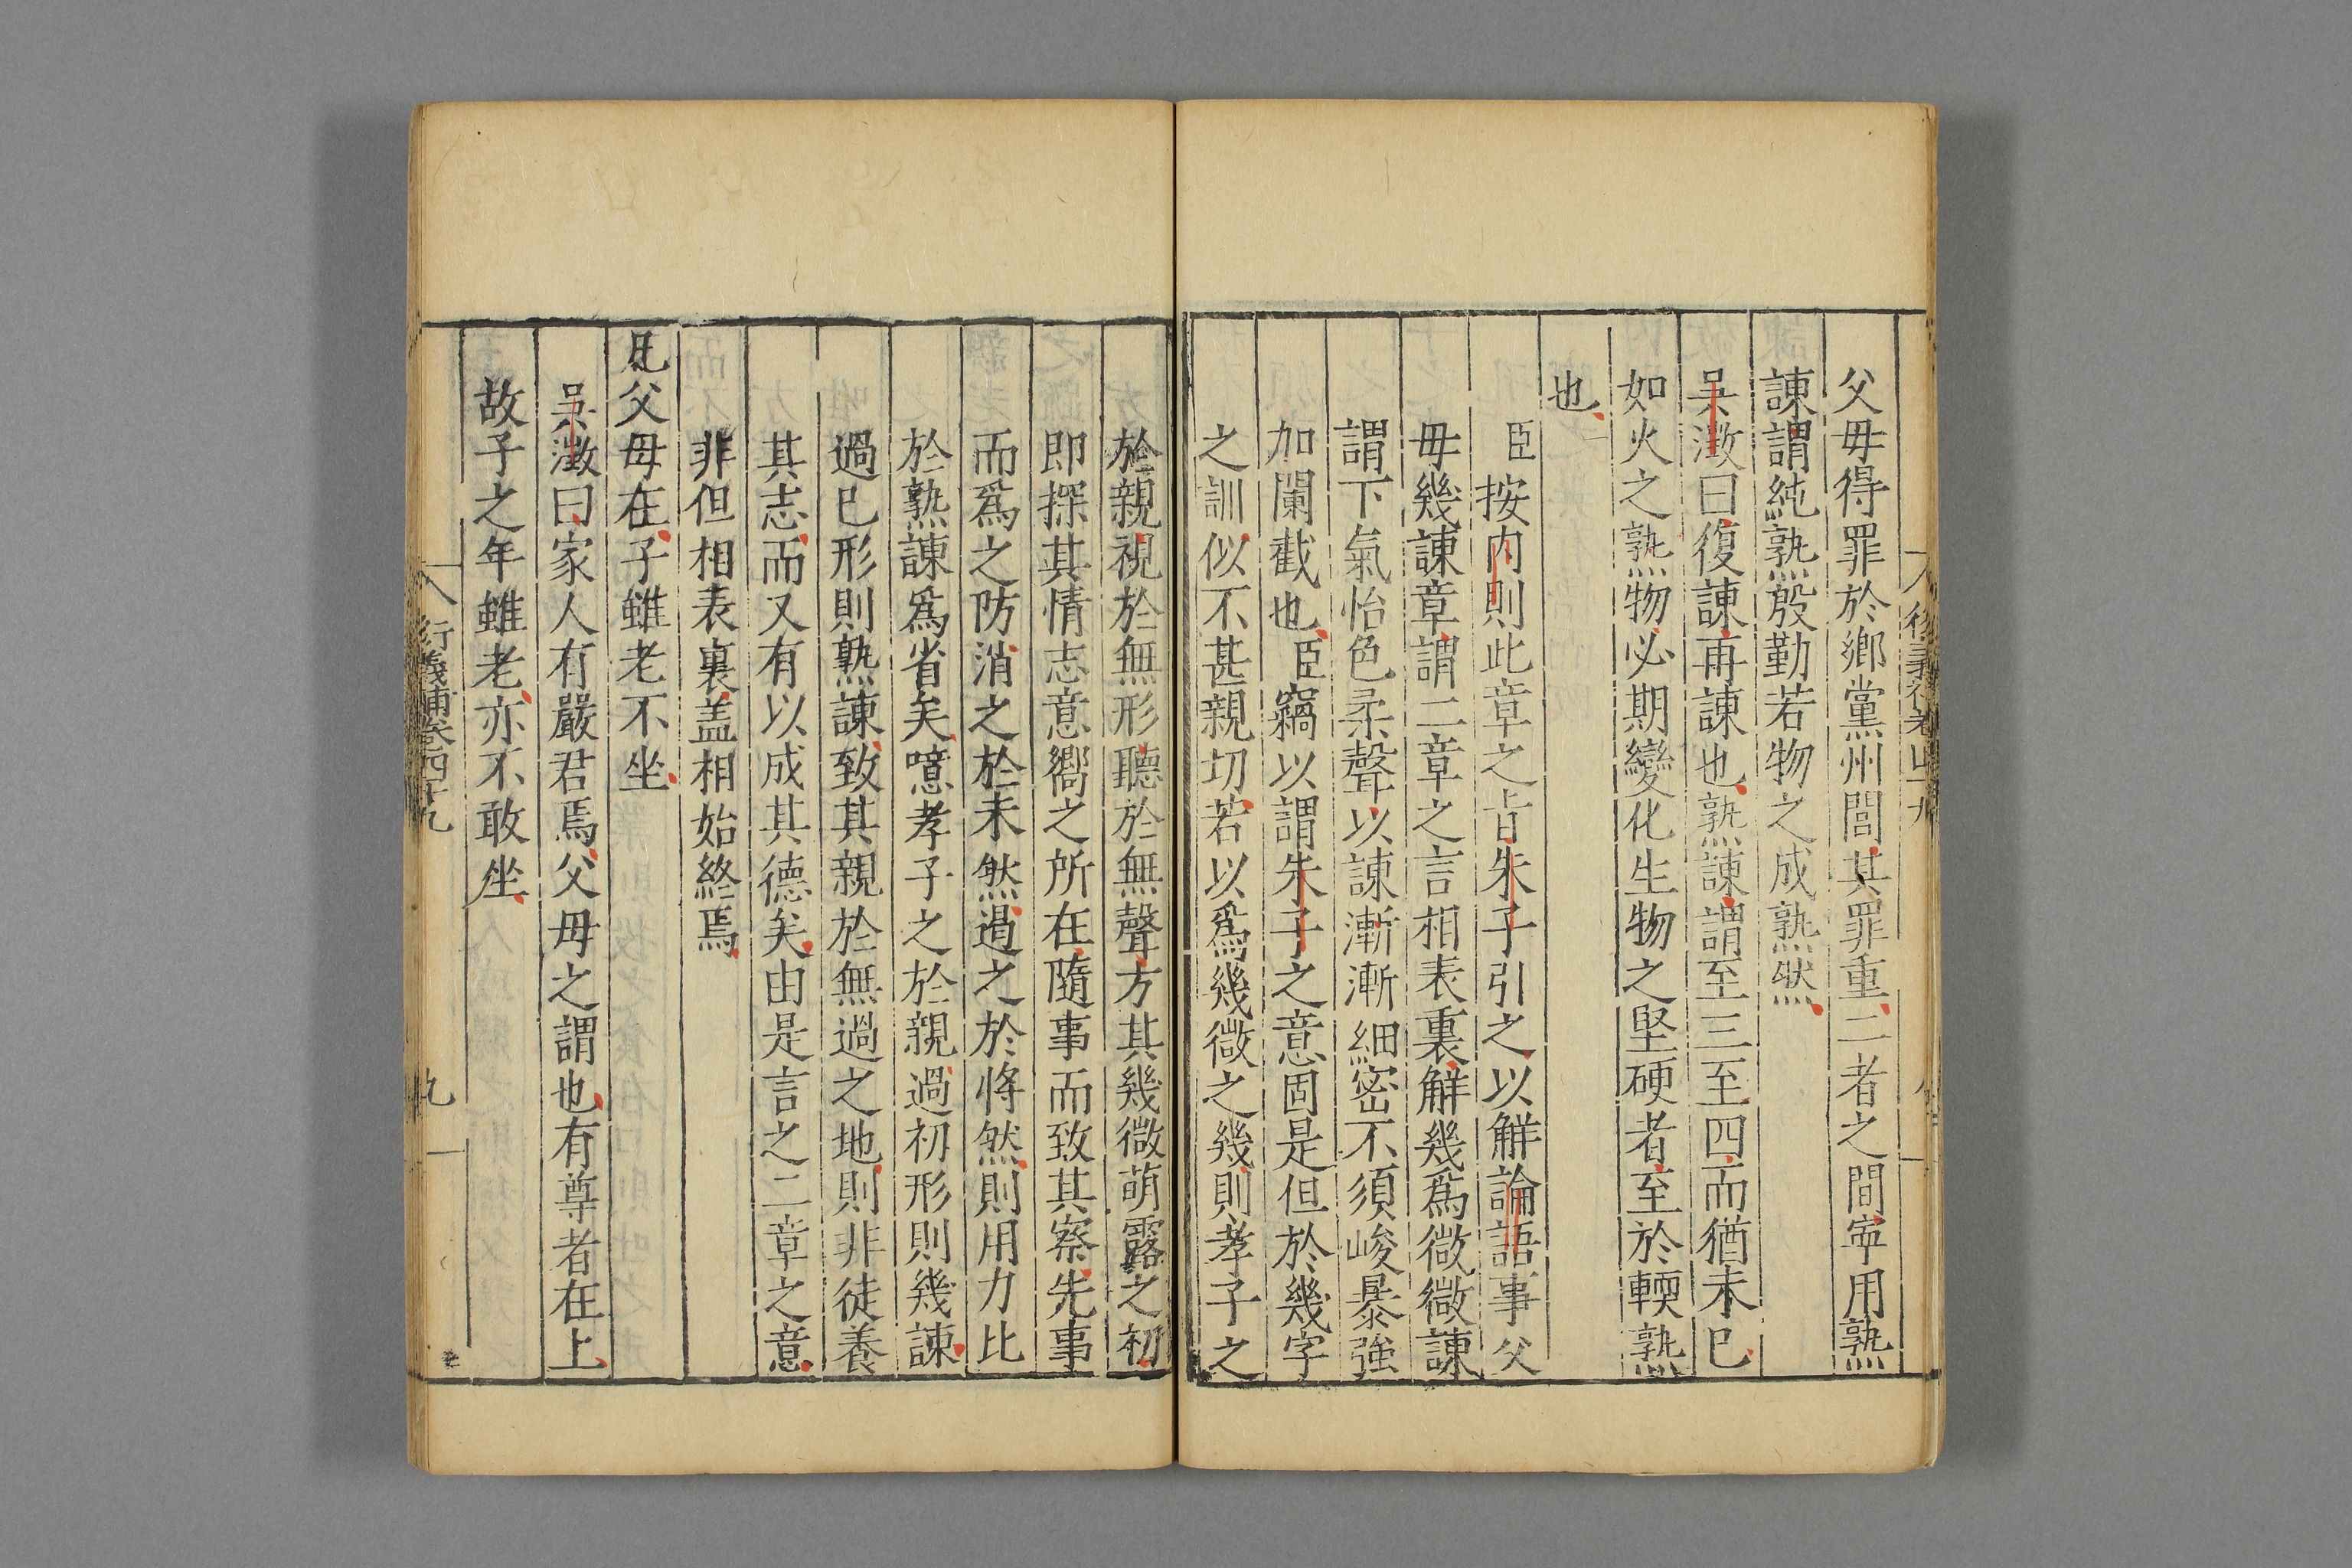 父毋得罪於鄉黨州閭其罪重二者之間寜用熟
諫謂純熟殷勤若物之成熟然
吴澂曰復諫再諫也熟諫謂至三至四而猶未已
如火之熟物必期變化生物之堅硬者至於輭熟
也
臣按内則此章之㫖朱子引之以觧論語事父
毋幾諫章謂二章之言相表裏觧幾爲微微諫
謂下氣怡色柔聲以諫漸漸細密不須峻暴強
加闌截也臣竊以謂朱子之意固是但於幾字
之訓似不甚親切若以爲幾微之幾則孝子之
於親視於無形聽於無聲方其幾微萌露之初
即探其情志意嚮之所在隨事而致其察先事
而爲之防消之於未然遏之於將然則用力比
於熟諫爲省矣噫孝子之於親過初形則幾諫
過已形則熟諫致其親於無過之地則非徒養
其志而又有以成其德矣由是言之二章之意
非但相表裏盖相始終焉
凡父母在子雖老不坐
吴澂曰家人有嚴君焉父母之謂也有尊者在上
故子之年雖老亦不敢坐
衍義補卷四十九
九